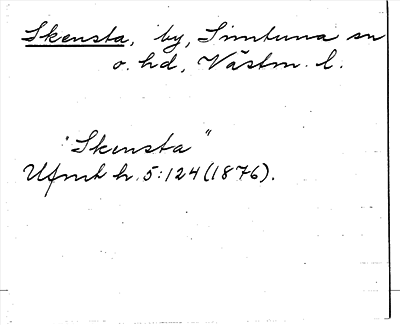 Skensta, by, Simtuna sn
o. hd, Västm. l.
"Skensta"
Ufmt h. 5:124 (1876).